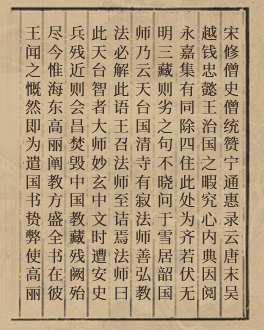 宋修僧史僧统赞宁通惠录云唐末吴
越钱忠懿王治国之暇究心内典因阅
永嘉集有同除四住此处为齐若伏无
明三藏则劣之句不晓问于雪居韶国
师乃云天台国清寺有寂法师善弘教
法必解此语王召法师至诘焉法师曰
此天台智者大师妙玄中文时遭安史
兵残近则会昌焚毁中国教藏残阙殆
尽今惟海东高丽阐教方盛全书在彼
王闻之慨然即为遣国书贽弊使高丽